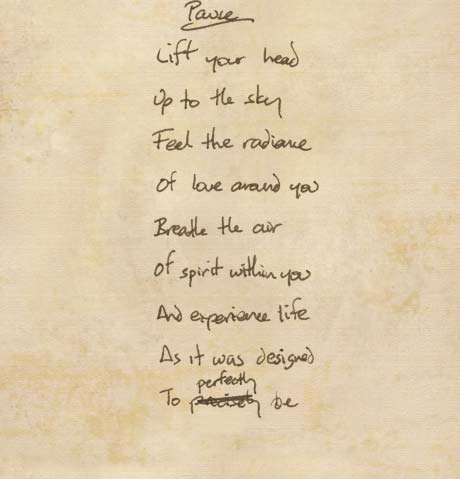 Pause
Lift your head
Up to the sky
Feel the radiance
Of love around you
Breathe the air
Of spirit within you
And experience life
As it was designed
perfectly
To precisely be